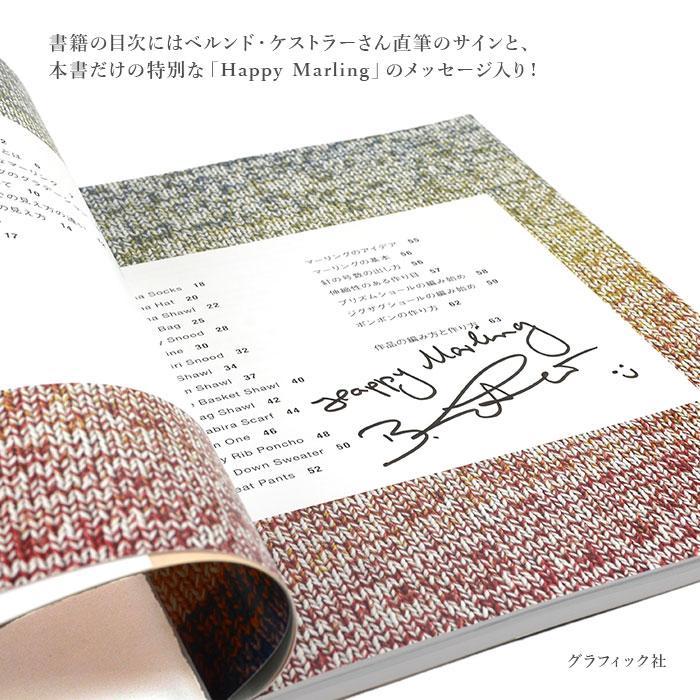 書籍の目次にはベルンド・ケストラーさん直筆のサインと、
本書だけの特別な「Happy Marling」のメッセージ入り！
とは 5
10
の見え方の違い
の見え方 14
17
Socks 18
Hat 20
Shawl 22
Bag 25
Snood 28
30
Snood 34
Shawl 32
Shawl 37
Basket Shawl 40
Shawl 42
Scarf 44
One 46
Rib Poncho 48
Down Sweater 50
Pants 52
マーリングのアイデア 55
マーリングの基本 56
針の号数の出し方 56
伸縮性のある作り目 57
プリズムショールの編み始め 58
ジグザグショールの編み始め 59
ボンボンの作り方 62
作品の編み方と作り方 63
Happy Marling
グラフィック社